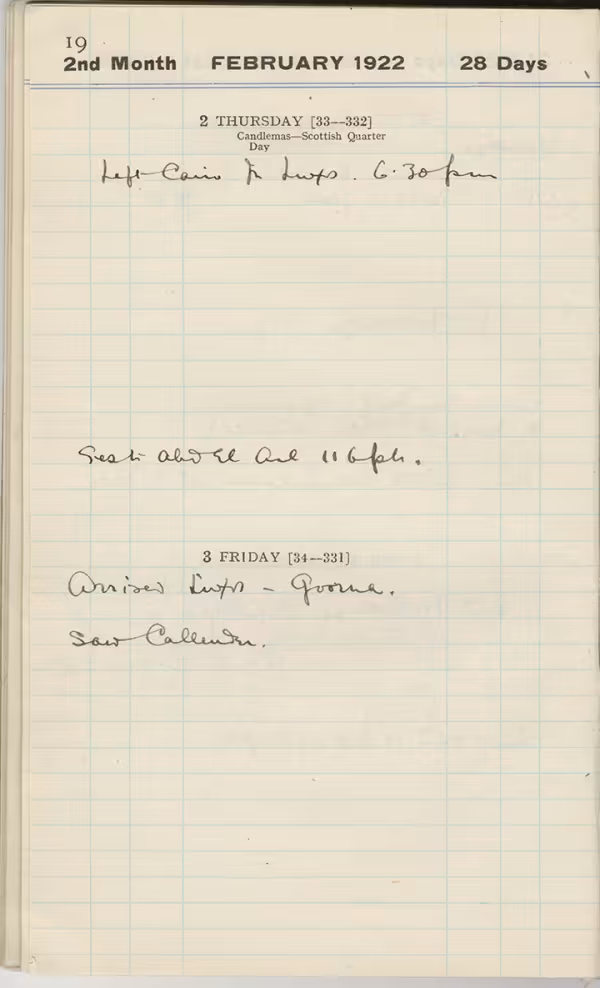 19
2nd Month FEBRUARY 1922 28 Days
2 THURSDAY [33—332]
Candlemas—Scottish Quarter
Day
Left Cairo for Luxor. 6.30 pm
Abd El Aal 116 pts.
3 FRIDAY [34—331]
Arrived Luxor - Goorna.
Saw Callender.